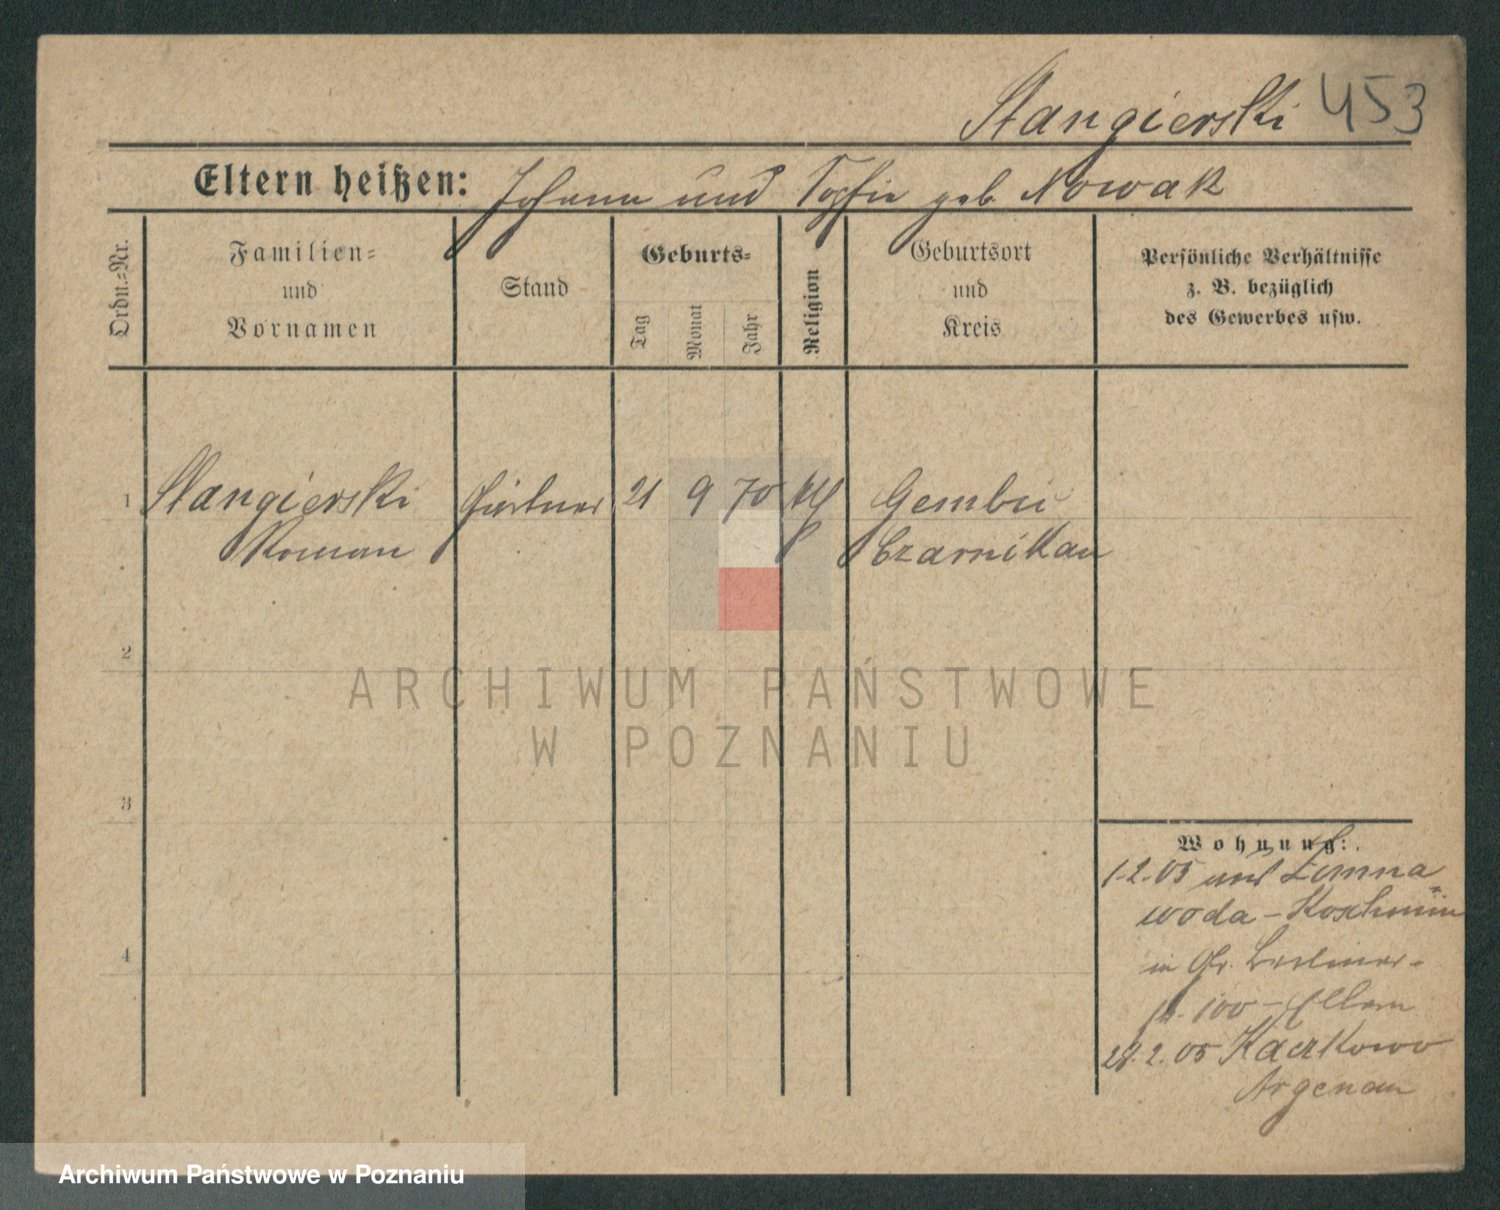 Stangierski 453
Eltern heißen: Johann und Sophie geb. Nowak
Ordn.-Nr.
Familien-
und
Vornamen
Stand
Geburts-
Tag
Monat
Jahr
Religion
Geburtsort
und
Kreis
Persönliche Verhältnisse
z. B. bezüglich
des Gewerbes usw.
1 Stangierski Gärtner 21 9 70 Gembic
Roman Czarnikau
2
3
4
Wohnung:
1.2.05 aus Zimna
woda - Koschmin
in Gr. Berliner-
100 - Eltern
28.2.05 Kaczkowo
Argenau
ARCHIWUM PAŃSTWOWE
W POZNANIU
Archiwum Państwowe w Poznaniu